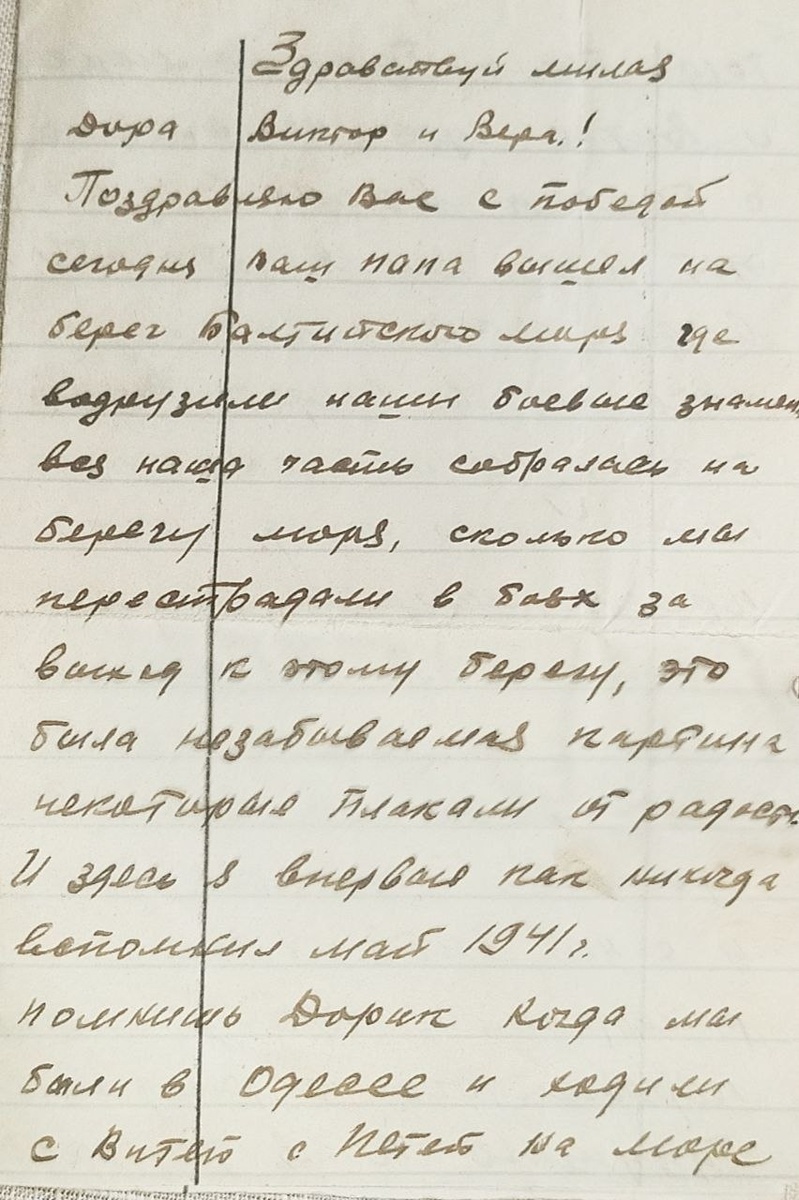 Здравствуй милая
Дора Виктор и Вера!
Поздравляю Вас с победой
сегодня ваш папа вышел на
берег Балтитского моря где
водрузили наши боевые знамен
вся наша часть собралась на
берегу моря, сколько мы
перестрадали в боях за
выход к этому берегу, это
была незабываемая картина
некоторые плакали от радости
И здесь я впервые как никогда
вспомнил май 1941 г.
помнишь Дорик когда мы
были в Одессе и ходили
с Витей с Петей на море